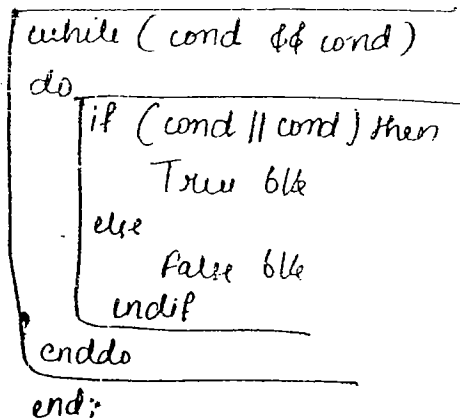 while ( cond && cond )
do
if ( cond || cond ) then
True blk
else
False blk
endif
enddo
end;